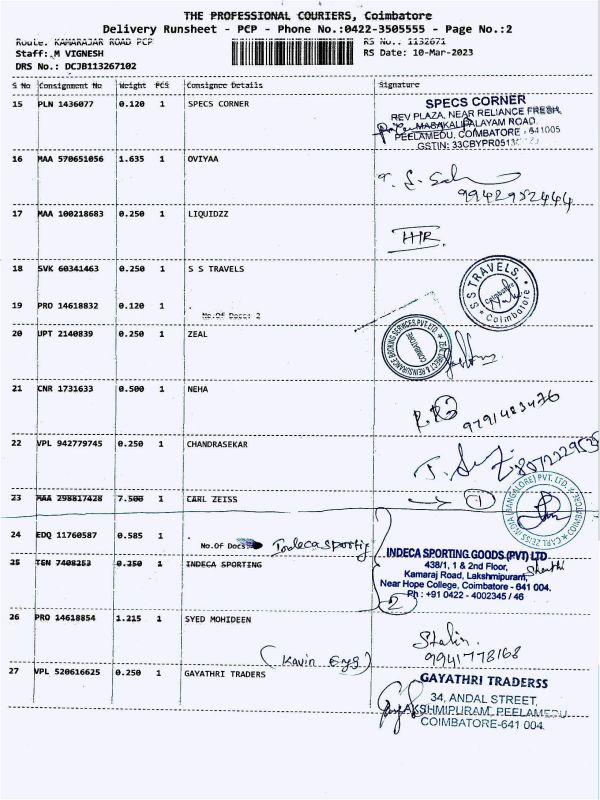 THE PROFESSIONAL COURIERS, Coimbatore
Delivery Runsheet - PCP - Phone No.:0422-3505555 - Page No.:2
Route: KAMARAJAR ROAD PCP RS No.: 1132671
Staff: M VIGNESH RS Date: 10-Mar-2023
DRS No.: DCJB113267102
S No Consignment No Weight PCS Consignee Details Signature
15 PLN 1436077 0.120 1 SPECS CORNER
SPECS CORNER
REV PLAZA, NEAR RELIANCE FRESH,
MASAKALIPALAYAM ROAD,
PEELAMEDU, COIMBATORE - 641005
GSTIN: 33CBYPR0513
16 MAA 570651056 1.635 1 OVIYAA
9942952444
17 MAA 100218683 0.250 1 LIQUIDZZ
18 SVK 60341463 0.250 1 S S TRAVELS
S S TRAVELS, Coimbatore
19 PRO 14618832 0.120 1
No.Of Docs: 2
20 UPT 2140839 0.250 1 ZEAL
COIMBATORE
21 CNR 1731633 0.500 1 NEHA
9791483476
22 VPL 942779745 0.250 1 CHANDRASEKAR
23 MAA 298817428 7.500 1 CARL ZEISS
1
CARL ZEISS INDIA (BANGALORE) PVT. LTD.
24 EDQ 11760587 0.585 1
No.Of Docs
25 TEN 7408253 0.250 1 INDECA SPORTING
INDECA SPORTING GOODS (PVT) LTD
438/1, 1 & 2nd Floor,
Kamaraj Road, Lakshmipuram,
Near Hope College, Coimbatore - 641 004.
Ph : +91 0422 - 4002345 / 46
2
26 PRO 14618854 1.215 1 SYED MOHIDEEN
Stalin
9941778168
27 VPL 520616625 0.250 1 GAYATHRI TRADERS
GAYATHRI TRADERSS
34, ANDAL STREET,
LAKSHMIPURAM, PEELAMEDU,
COIMBATORE-641 004.